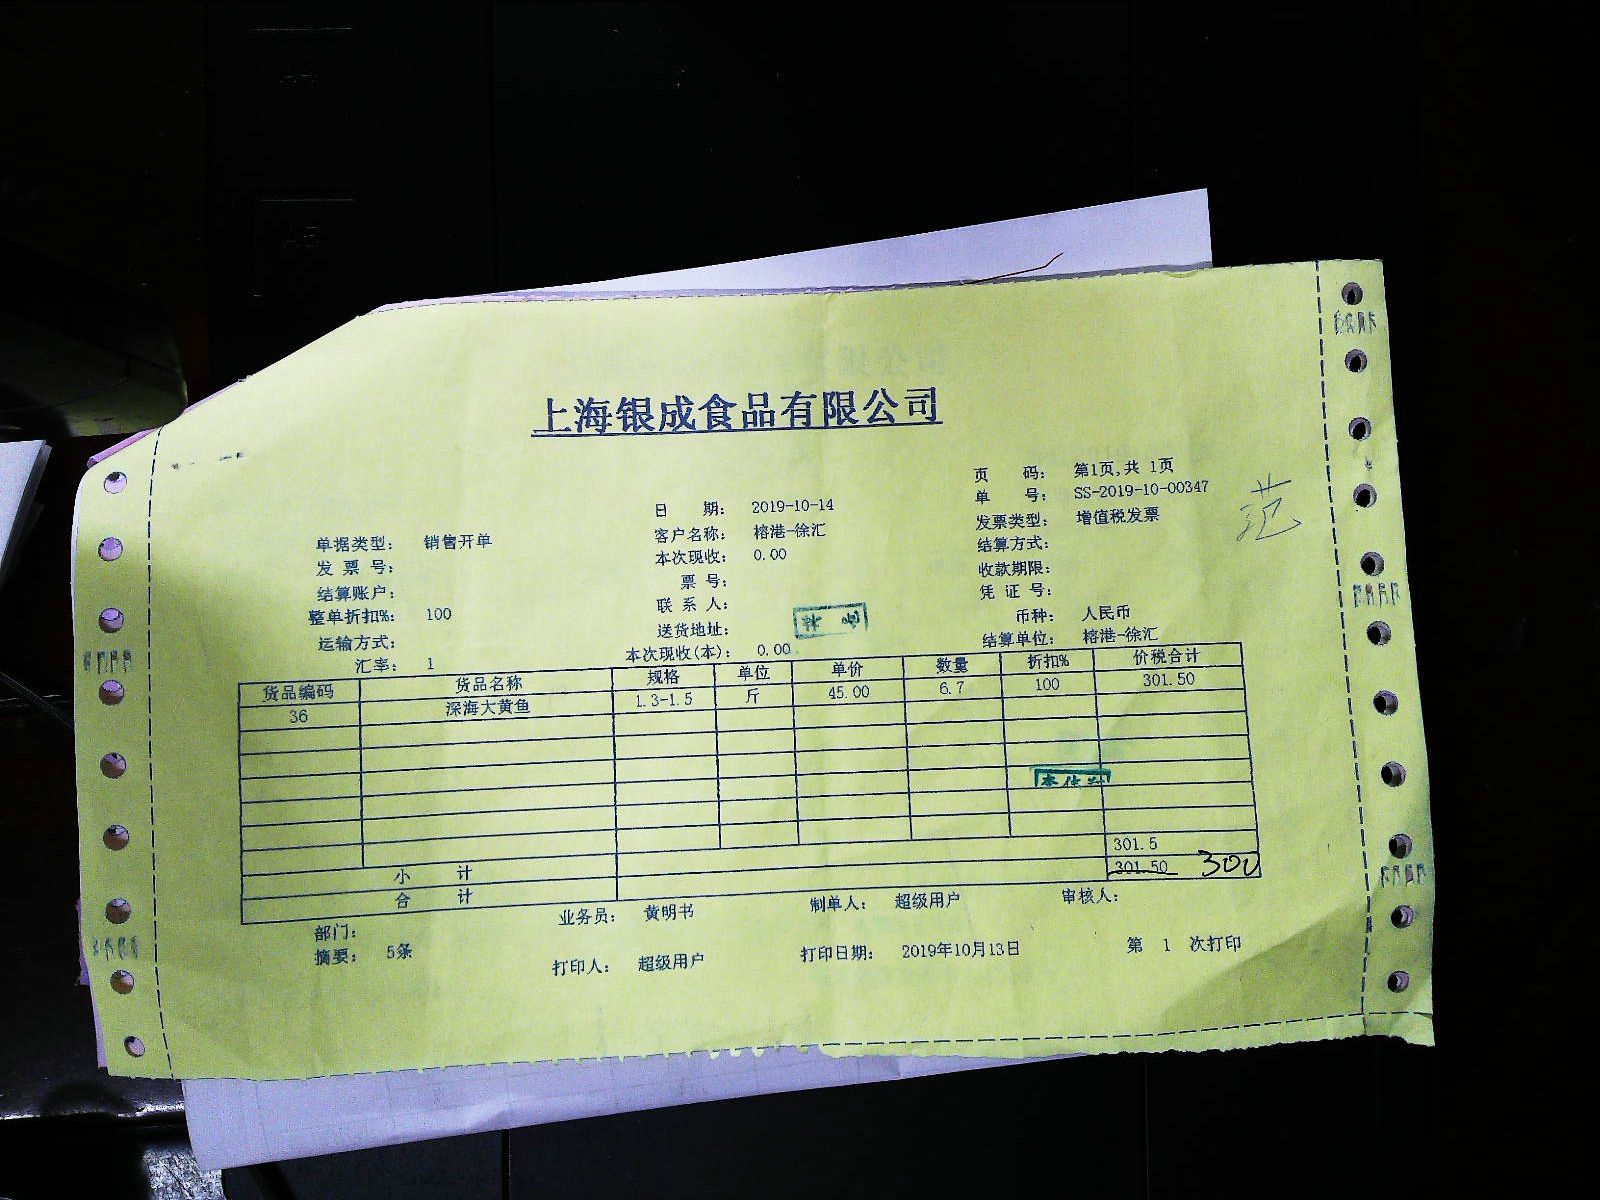 上海银成食品有限公司
页 码： 第1页,共 1页
日 期： 2019-10-14 单 号： SS-2019-10-00347
单据类型： 销售开单 客户名称： 榕港-徐汇 发票类型： 增值税发票
发 票 号： 本次现收： 0.00 结算方式：
结算账户： 票 号： 收款期限：
整单折扣%： 100 联 系 人： 凭 证 号：
运输方式： 送货地址： 币种： 人民币
汇率： 1 本次现收(本)： 0.00 结算单位： 榕港-徐汇
范
货品编码 货品名称 规格 单位 单价 数量 折扣% 价税合计
36 深海大黄鱼 1.3-1.5 斤 45.00 6.7 100 301.50
小 计 301.5
合 计 301.50 300
部门： 业务员： 黄明书 制单人： 超级用户 审核人：
摘要： 5条 打印人： 超级用户 打印日期： 2019年10月13日 第 1 次打印